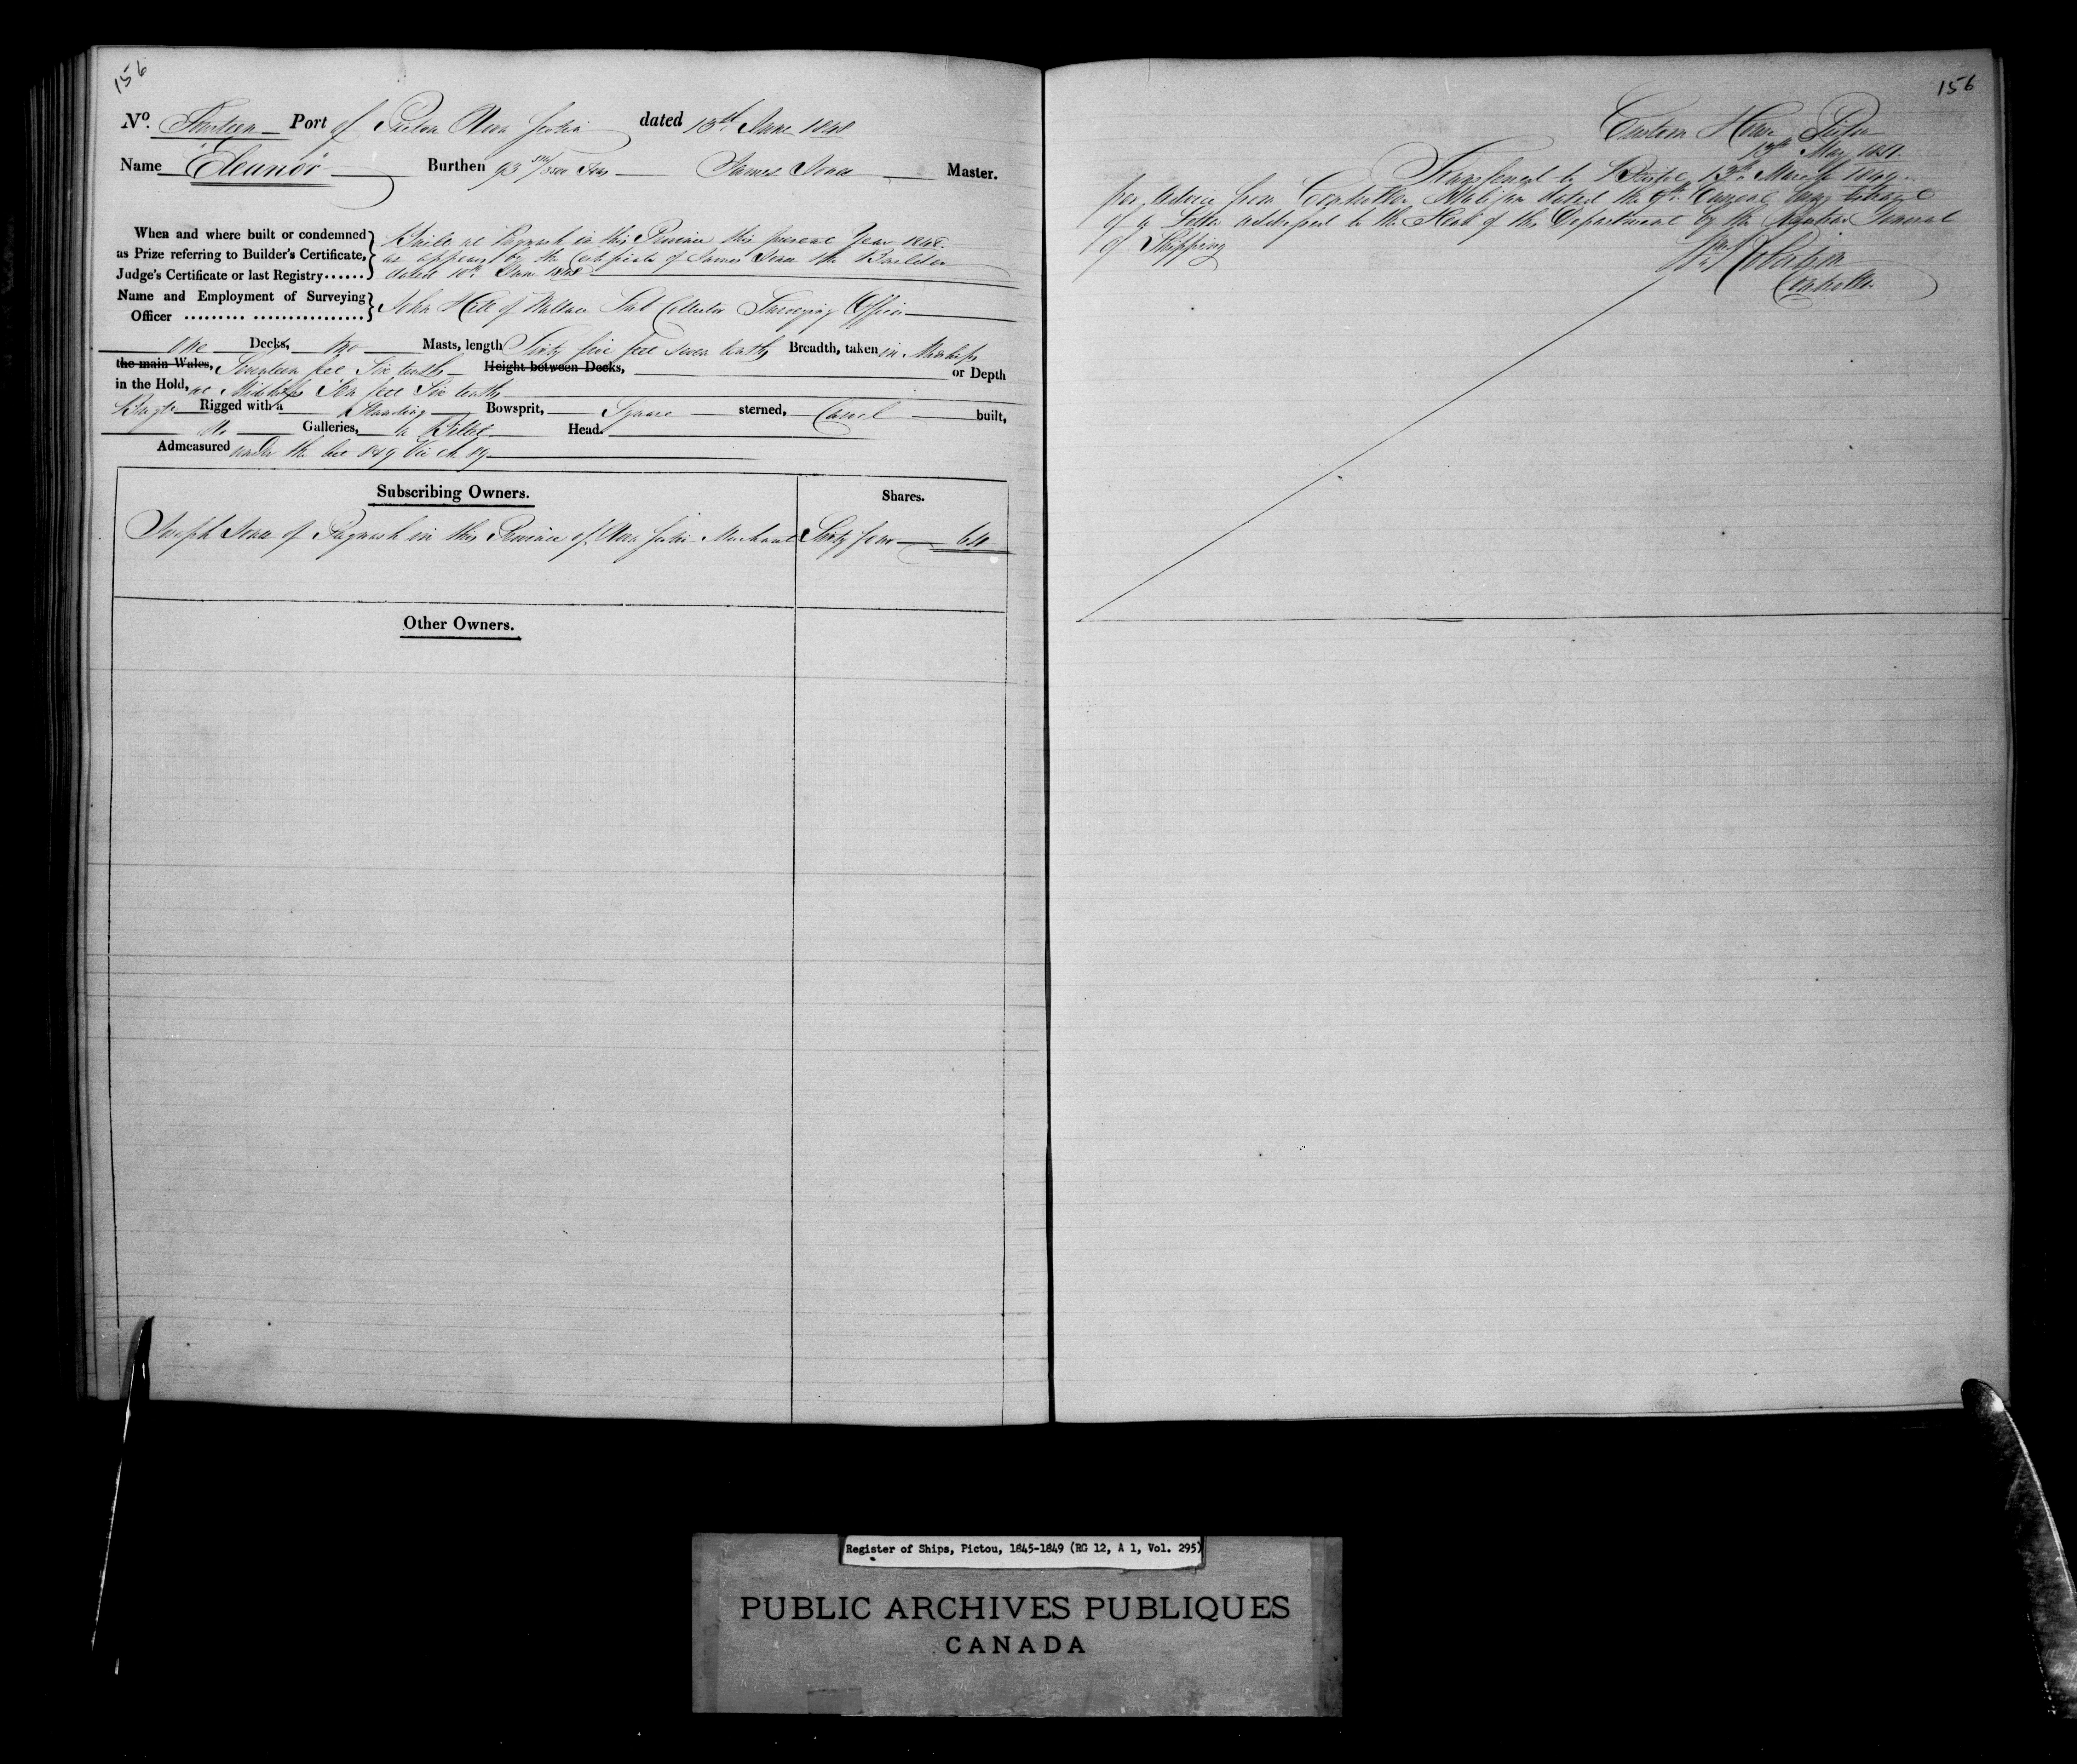 156
No. Thirteen Port of Pictou Nova Scotia dated 13th June 1848
Name "Eleanor" Burthen 93 /3500 Tons James Master.
When and where built or condemned as Prize referring to Builder's Certificate, Judge's Certificate or last Registry......
Built at Pugwash in this Province this present Year 1848
as appears by the Certificate of James the Builder
dated 10th June 1848
Name and Employment of Surveying Officer ......... ................
John of Wallace Sub Collector Surveying Officer
One Decks, two Masts, length Sixty five feet seven tenths Breadth, taken in Midships
the main Wales, Seventeen feet Six tenths Height between Decks, or Depth
in the Hold, at Midships Ten feet Six tenths
Rigged with a Standing Bowsprit, Square sterned, Carvel built,
No Galleries, a Billet Head.
Admeasured under the Act 8 & 9 Vic ch 89
Subscribing Owners. Shares.
Joseph of Pugwash in this Province of Nova Scotia Merchant Sixty four 64
Other Owners.
156
Custom House Pictou
13th May 1851.
Transferred to 13th March 1849
per advice from Controller Halifax dated the 9th
of a Letter addressed to the Head of the Department by the Register General
of Shipping
Controller
Register of Ships, Pictou, 1845-1849 (RG 12, A 1, Vol. 295)
PUBLIC ARCHIVES PUBLIQUES
CANADA